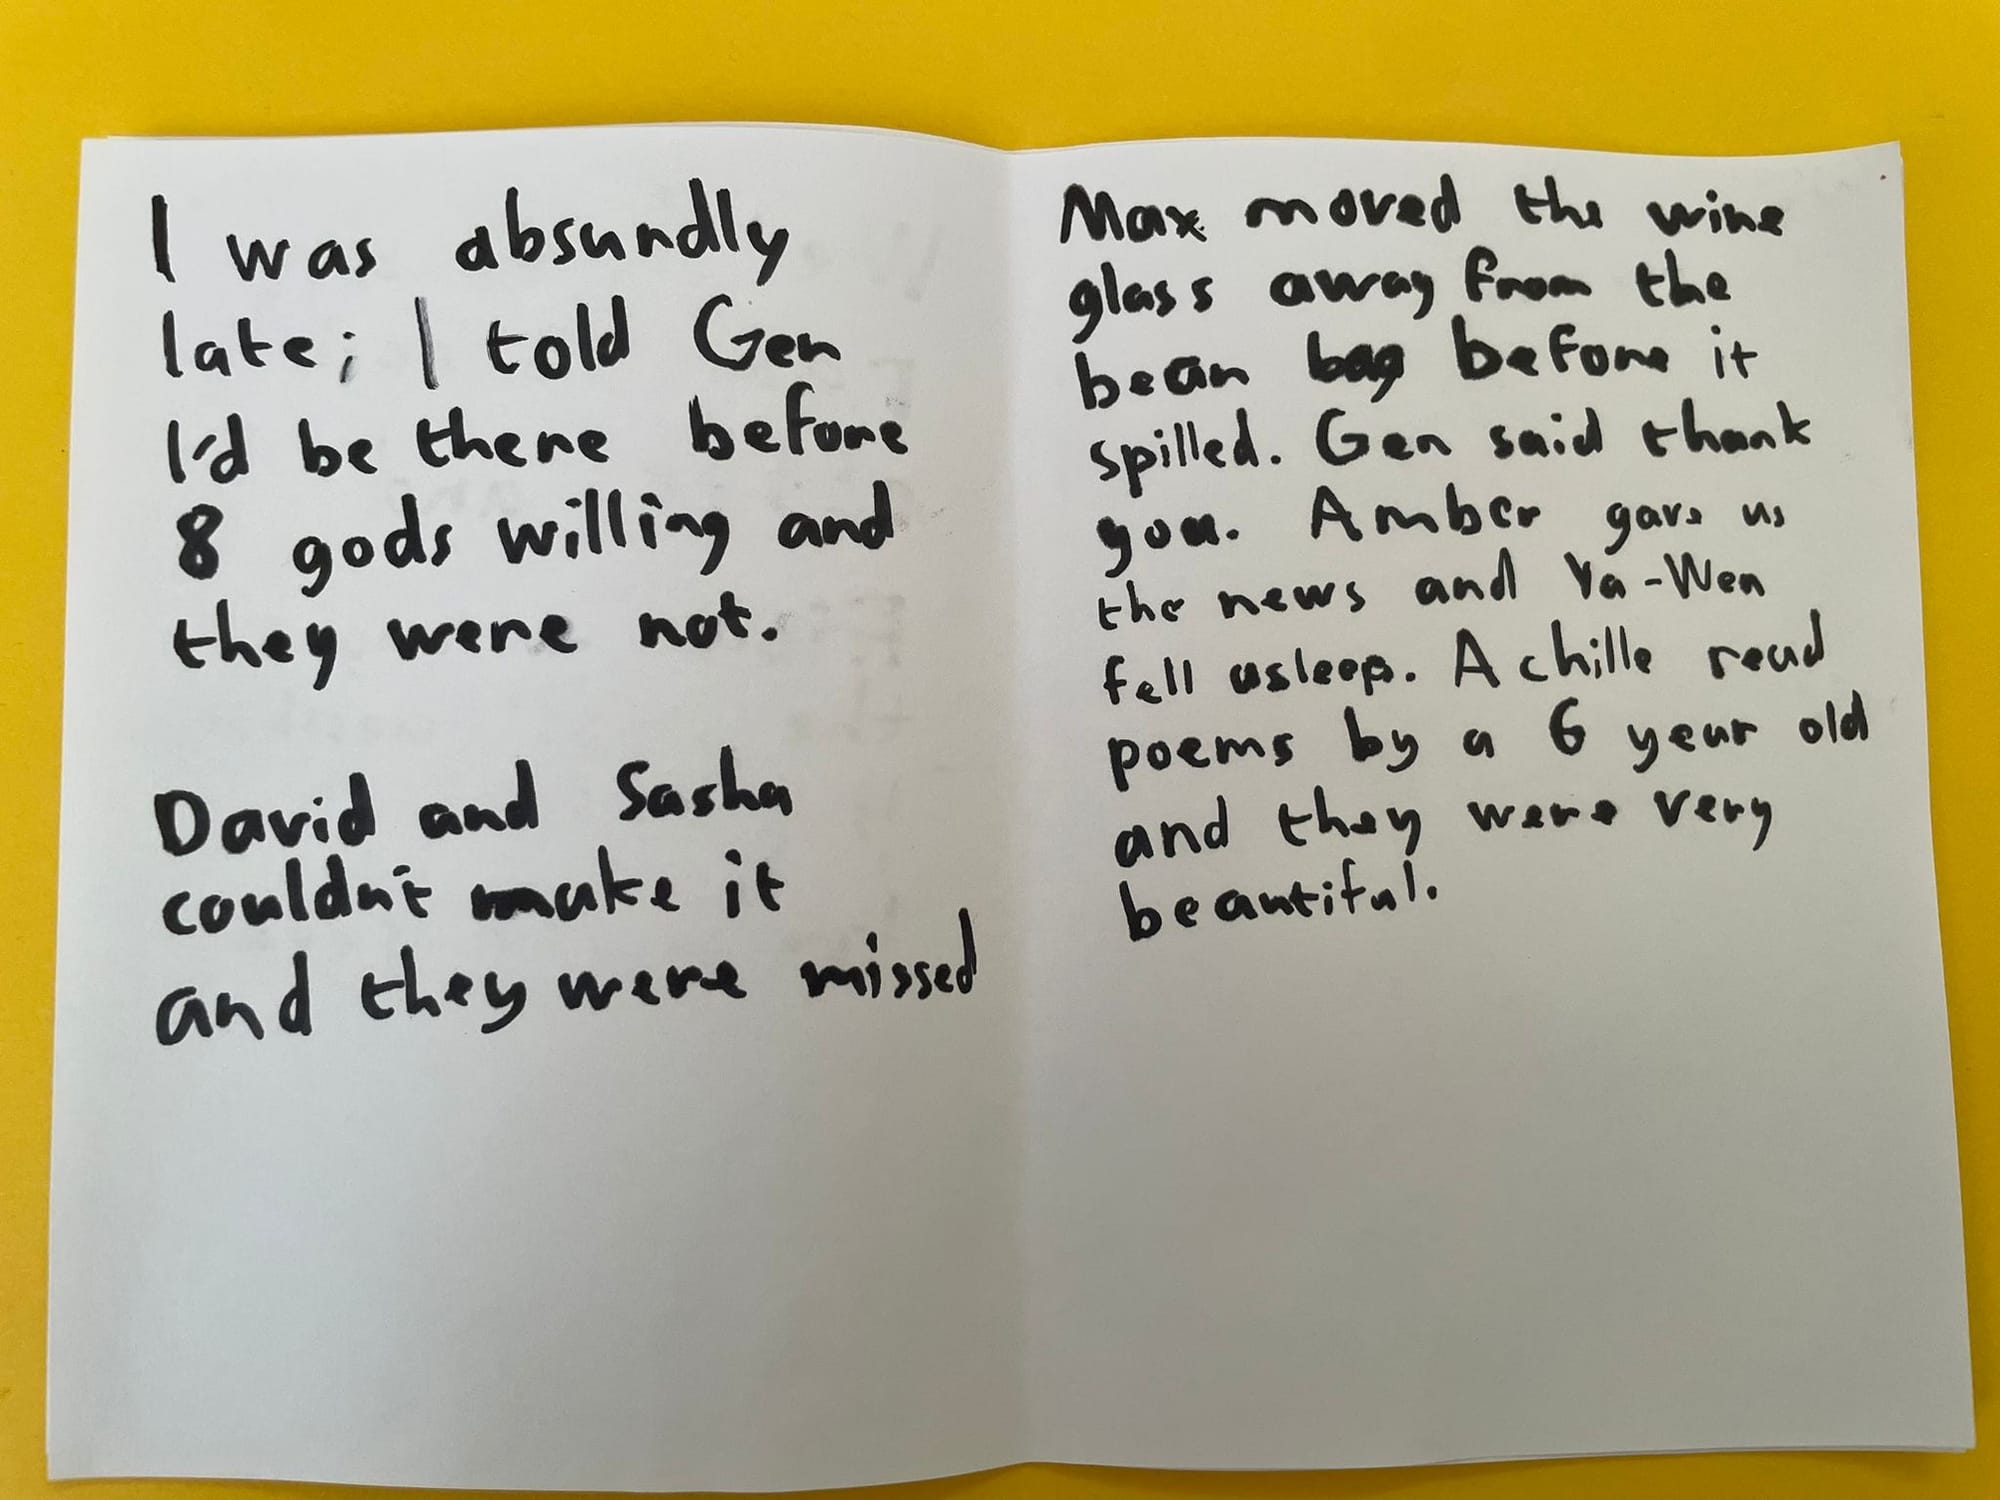 I was absurdly
late; I told Gen
I'd be there before
8 gods willing and
they were not.
David and Sasha
couldn't make it
and they were missed
Max moved the wine
glass away from the
bean bag before it
spilled. Gen said thank
you. Amber gave us
the news and Ya-Wen
fell asleep. Achille read
poems by a 6 year old
and they were very
beautiful.